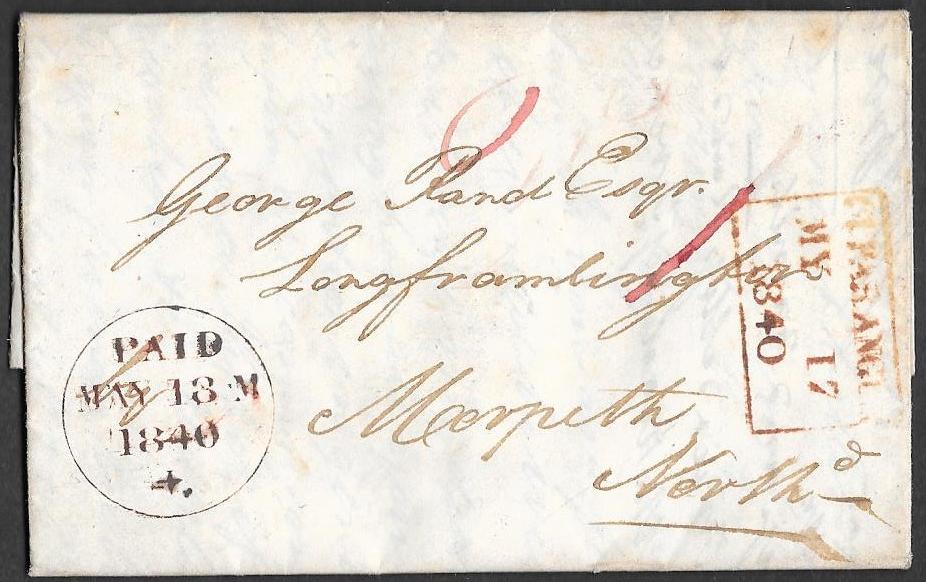 George Rand Esqr.
Longframlington
by Morpeth
North^d
1
PAID
MAY 18 M
1840
4.
MY 17
1840